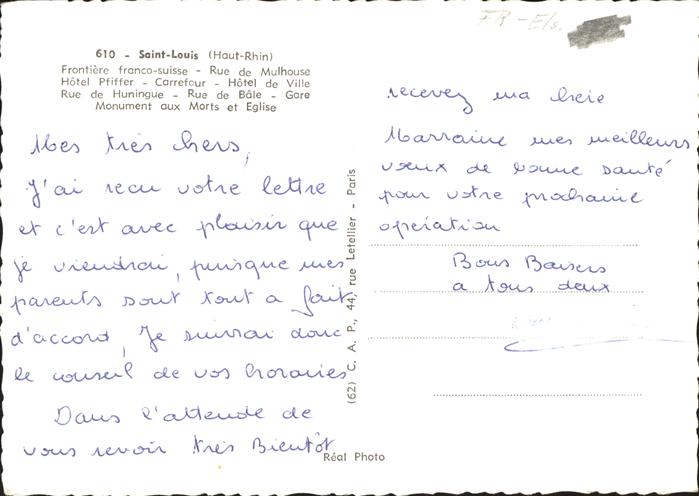 FR-Els.
610 - Saint-Louis (Haut-Rhin)
Frontière franco-suisse - Rue de Mulhouse
Hôtel Pfiffer - Carrefour - Hôtel de Ville
Rue de Huningue - Rue de Bâle - Gare
Monument aux Morts et Eglise
Mes très chers,
J'ai recu votre lettre
et c'est avec plaisir que
je viendrai, puisque mes
parents sont tout a fait
d'accord, Je suivrai donc
le conseil de vos horaires
Dans l'attende de
vous revoir très Bientôt
(62) C. A. P., 44, rue Letellier - Paris
Réal Photo
recevez ma
Marraine mes meilleurs
vœux de bonne santé
pour votre prochaine
opération
Bons Baisers
a tous deux